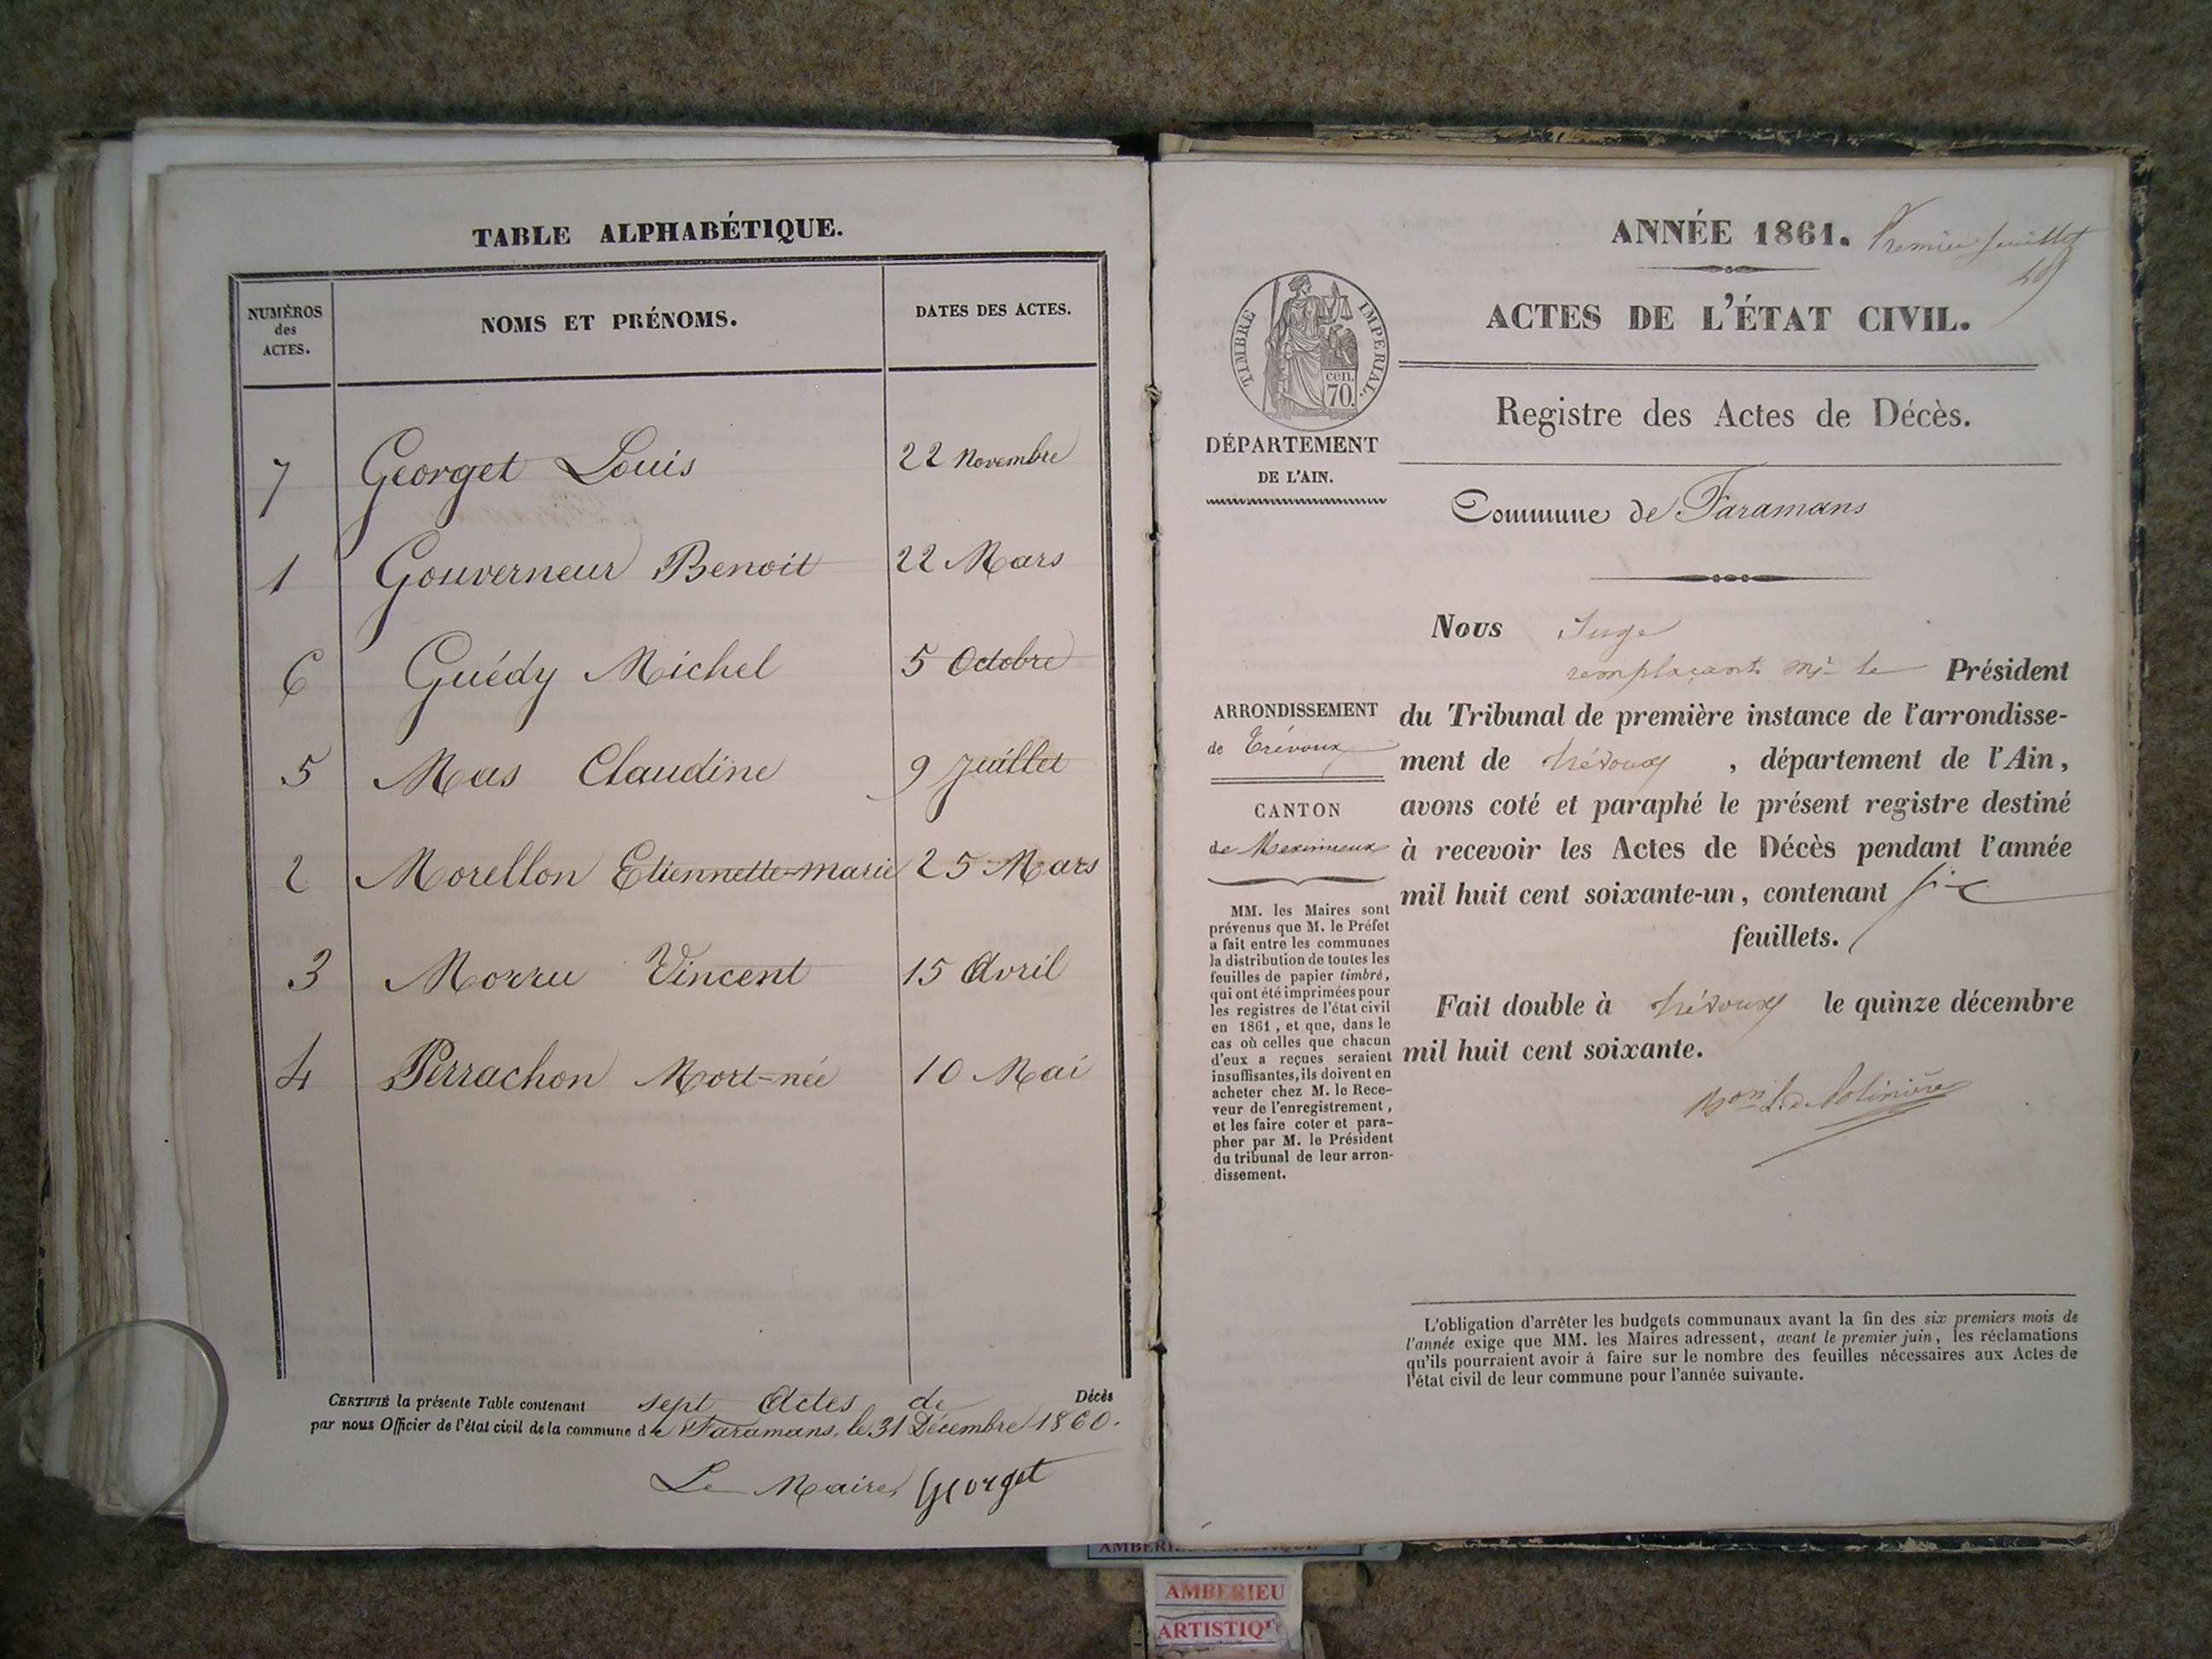 TABLE ALPHABÉTIQUE.
NUMÉROS des ACTES.
NOMS ET PRÉNOMS.
DATES DES ACTES.
7 Georget Louis 22 Novembre
1 Gouverneur Benoit 22 Mars
6 Guédy Michel 5 Octobre
5 Mas Claudine 9 Juillet
2 Morellon Etiennette-marie 25 Mars
3 Morru Vincent 15 Avril
4 Perrachon Mort-née 10 Mai
CERTIFIÉ la présente Table contenant sept Actes de Décès
par nous Officier de l'état civil de la commune de Faramans, le 31 Décembre 1860.
Le Maire, Georget
ANNÉE 1861. Premier feuillet
ACTES DE L'ÉTAT CIVIL.
TIMBRE IMPERIAL.
cen.
70.
Registre des Actes de Décès.
DÉPARTEMENT
DE L'AIN.
Commune de Faramans
ARRONDISSEMENT
de Trévoux
CANTON
de Meximieux
MM. les Maires sont
prévenus que M. le Préfet
a fait entre les communes
la distribution de toutes les
feuilles de papier timbré,
qui ont été imprimées pour
les registres de l'état civil
en 1861, et que, dans le
cas où celles que chacun
d'eux a reçues seraient
insuffisantes, ils doivent en
acheter chez M. le Rece-
veur de l'enregistrement,
et les faire coter et para-
pher par M. le Président
du tribunal de leur arron-
dissement.
Nous Juge
remplaçant Mr le Président
du Tribunal de première instance de l'arrondisse-
ment de Trévoux, département de l'Ain,
avons coté et paraphé le présent registre destiné
à recevoir les Actes de Décès pendant l'année
mil huit cent soixante-un, contenant six
feuillets.
Fait double à Trévoux le quinze décembre
mil huit cent soixante.
L'obligation d'arrêter les budgets communaux avant la fin des six premiers mois de
l'année exige que MM. les Maires adressent, avant le premier juin, les réclamations
qu'ils pourraient avoir à faire sur le nombre des feuilles nécessaires aux Actes de
l'état civil de leur commune pour l'année suivante.
AMBERIEU